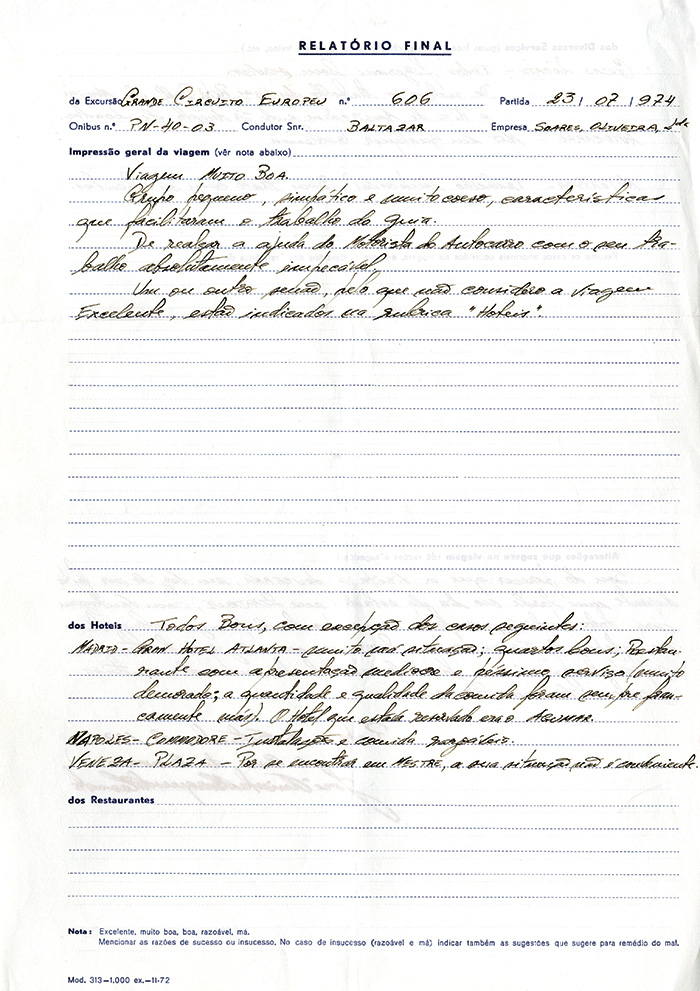 RELATÓRIO FINAL
da Excursão GRANDE CIRCUITO EUROPEU n.º 606 Partida 23/07/1974
Onibus n.º PN-40-03 Condutor Snr. BALTAZAR Empresa SOARES, OLIVEIRA,
Impressão geral da viagem (vêr nota abaixo)
Viagem MUITO BOA.
Grupo pequeno, simpático e muito coeso, características
que facilitaram o trabalho do guia.
De realçar a ajuda do Motorista do Autocarro com o seu tra-
balho absolutamente impecável.
Um ou outro senão, pelo que não considero a viagem
Excelente, estão indicados na rubrica "Hoteis".
dos Hoteis Todos Bons, com excepção dos casos seguintes:
MADRID - GRAN HOTEL ATLANTA - muito má situação; quartos bons; Restau-
rante com apresentação mediocre e péssimo serviço (muito
demorado; a quantidade e qualidade da comida foram sempre fran-
camente más). O Hotel que estava reservado era o AGUMAR.
NAPOLES - COMMODORE - Instalação e comida razoáveis.
VENEZA - PLAZA - Por se encontrar em MESTRE, a sua situação não é conveniente.
dos Restaurantes
Nota: Excelente, muito boa, boa, razoável, má.
Mencionar as razões de sucesso ou insucesso. No caso de insucesso (razoável e má) indicar também as sugestões que sugere para remédio do mal.
Mod. 313—1.000 ex.—11-72